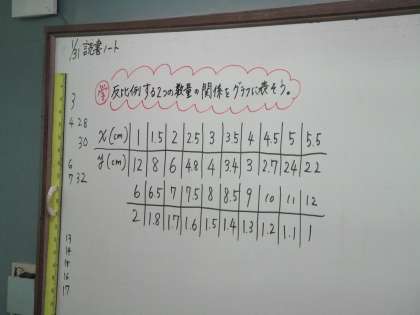 1/31 読書ノート
学 反比例する2つの数量の関係をグラフに表そう。
x(cm) 1 1.5 2 2.5 3 3.5 4 4.5 5 5.5
y(cm) 12 8 6 4.8 4 3.4 3 2.7 2.4 2.2
6 6.5 7 7.5 8 8.5 9 10 11 12
2 1.8 1.7 1.6 1.5 1.4 1.3 1.2 1.1 1
3
4 28
30
6
7 32
13
14
14
16
17